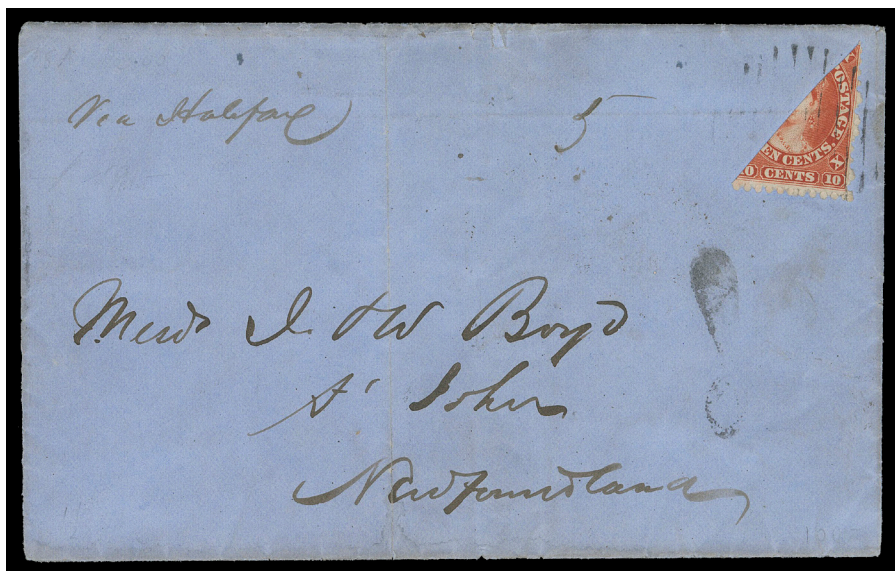 Via Halifax
5
POSTAGE.
EN CENTS.
X
0 CENTS 10
Messrs J. & W Boyd
St Johns
Newfoundland